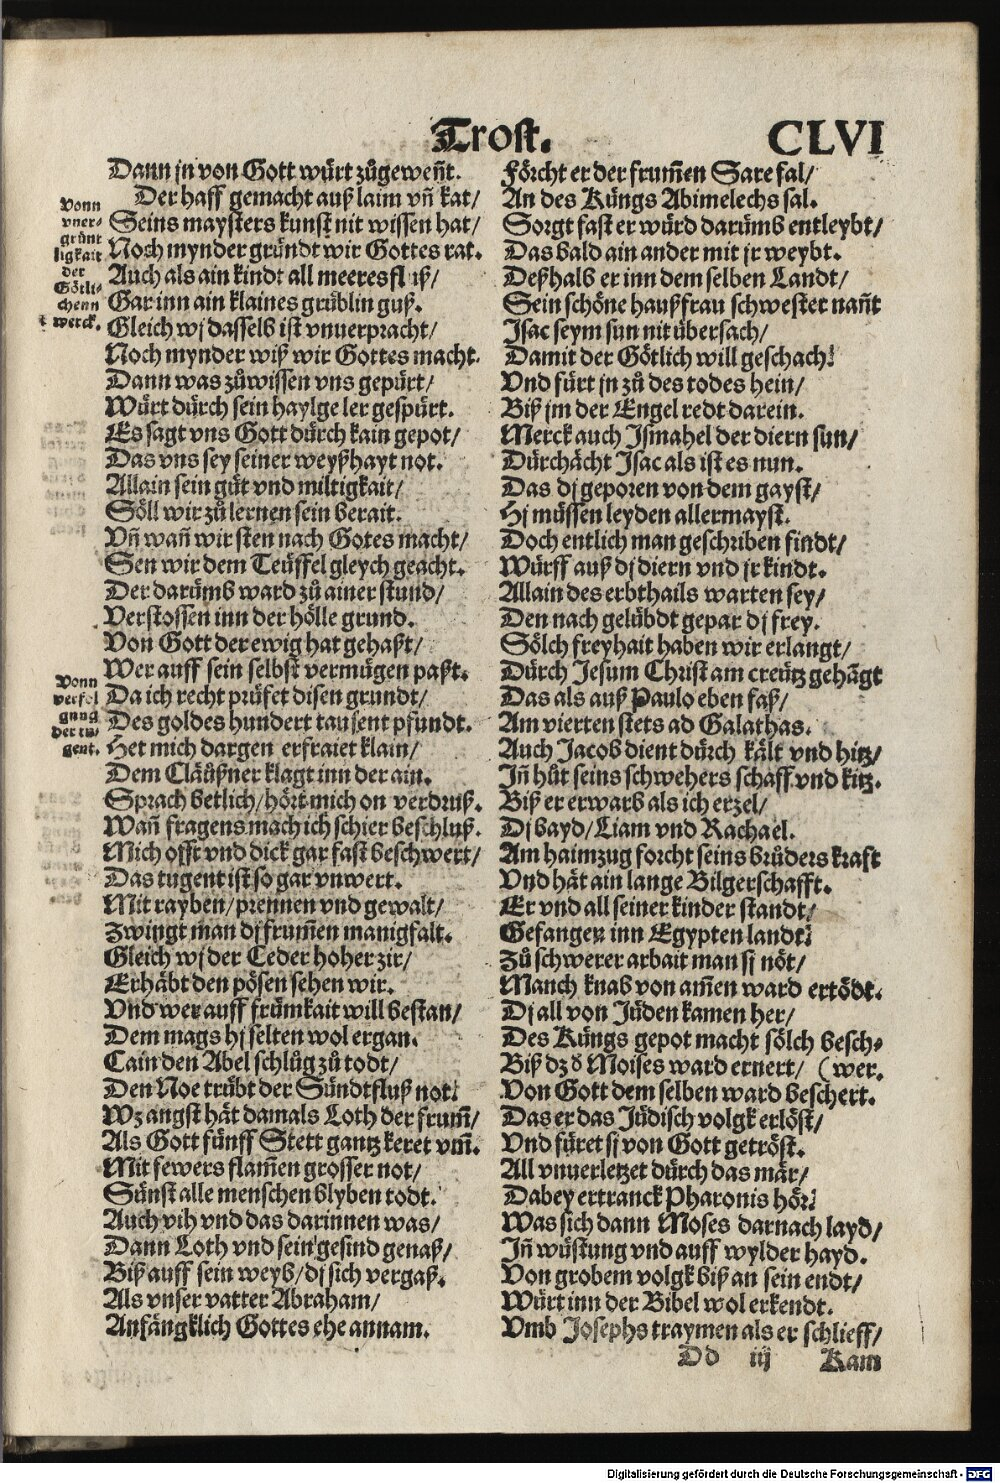 Trost. CLVI
Dann jn von Gott würt zůgeweñt.
Der haff gemacht auß laim vñ kat/
Seins maysters kunst nit wissen hat/
Noch mynder gründt wir Gottes rat.
Auch als ain kindt all meeresfluß/
Gar inn ain klaines grüblin guß.
Gleich wj dasselb ist vnuerpracht/
Noch mynder wiß wir Gottes macht.
Dann was zůwissen vns gepürt/
Würt dürch sein haylge ler gespürt.
Es sagt vns Gott dürch kain gepot/
Das vns sey seiner weyßhayt not.
Allain sein güt vnd miltigkait/
Söll wir zů lernen sein berait.
Vñ wañ wir sten nach Gotes macht/
Sen wir dem Teüffel gleych geacht.
Der darümb ward zů ainer stund/
Verstossen inn der hölle grund.
Von Gott der ewig hat gehaßt/
Wer auff sein selbst vermügen paßt.
Da ich recht prüfet disen grundt/
Des goldes hundert tausent pfundt.
Het mich dargen erfraiet klain/
Dem Cläüßner klagt inn der ain.
Sprach betlich/hört mich on verdruß.
Wañ fragens mach ich schier beschluß.
Mich offt vnd dick gar fast beschwert/
Das tugent ist so gar vnwert.
Mit rayben/prennen vnd gewalt/
Zwingt man dj frum̃en manigfalt.
Gleich wj der Ceder hoher zir/
Erhäbt den pösen sehen wir.
Vnd wer auff frümkait will bestan/
Dem mags hj selten wol ergan.
Cain den Abel schlůg zů todt/
Den Noe trübt der Sündtfluß not:
Wz angst hät damals Loth der frum̃/
Als Gott fünff Stett gantz keret vm̃.
Mit fewers flam̃en grosser not/
Sünst alle menschen blyben todt.
Auch vih vnd das darinnen was/
Dann Loth vnd sein gesind genaß/
Biß auff sein weyb/dj sich vergaß.
Als vnser vatter Abraham/
Anfängklich Gottes ehe annam.
Vonn
vner-
gründt
ligkait
der
Götli-
chenn
werck.
Vonn
verfol
gung
der tu-
gent.
Förcht er der frum̃en Sare fal/
An des Küngs Abimelechs sal.
Sorgt fast er würd darümb entleybt/
Das bald ain ander mit jr weybt.
Deßhalb er inn dem selben Landt/
Sein schöne haußfrau schwester nañt
Isac seym sun nit übersach/
Damit der Götlich will geschach:
Vnd fürt jn zů des todes hein/
Biß jm der Engel redt darein.
Merck auch Ismahel der diern sun/
Dürchächt Isac als ist es nun.
Das dj geporen von dem gayst/
Hj müssen leyden allermayst.
Doch entlich man geschriben findt/
Würff auß dj diern vnd jr kindt.
Allain des erbthails warten sey/
Den nach gelübdt gepar dj frey.
Sölch freyhait haben wir erlangt/
Dürch Jesum Christ am creütz gehãgt
Das als auß Paulo eben faß/
Am vierten stets ad Galathas.
Auch Jacob dient dürch kält vnd hitz/
Iñ hůt seins schwehers schaff vnd kitz.
Biß er erwarb als ich erzel/
Dj bayd/Liam vnd Rachael.
Am haimzug forcht seins brůders kraft
Vnd hät ain lange Bilgerschafft.
Er vnd all seiner kinder standt/
Gefangen inn Egypten landt:
Zů schwerer arbait man sj nöt/
Manch knab von am̃en ward ertödt.
Dj all von Jüden kamen her/
Des Küngs gepot macht sölch besch-
Biß dz d Moises ward ernert/ (wer.
Von Gott dem selben ward beschert.
Das er das Jüdisch volgk erlöst/
Vnd füret sj von Gott getröst.
All vnuerletzet dürch das mär/
Dabey ertranck Pharonis hör:
Was sich dann Moses darnach layd/
Iñ wüstung vnd auff wylder hayd.
Von grobem volgk biß an sein endt/
Würt inn der Bibel wol erkendt.
Vmb Josephs traymen als er schlieff/
Dd iij Kam
Digitalisierung gefördert durch die Deutsche Forschungsgemeinschaft - DFG